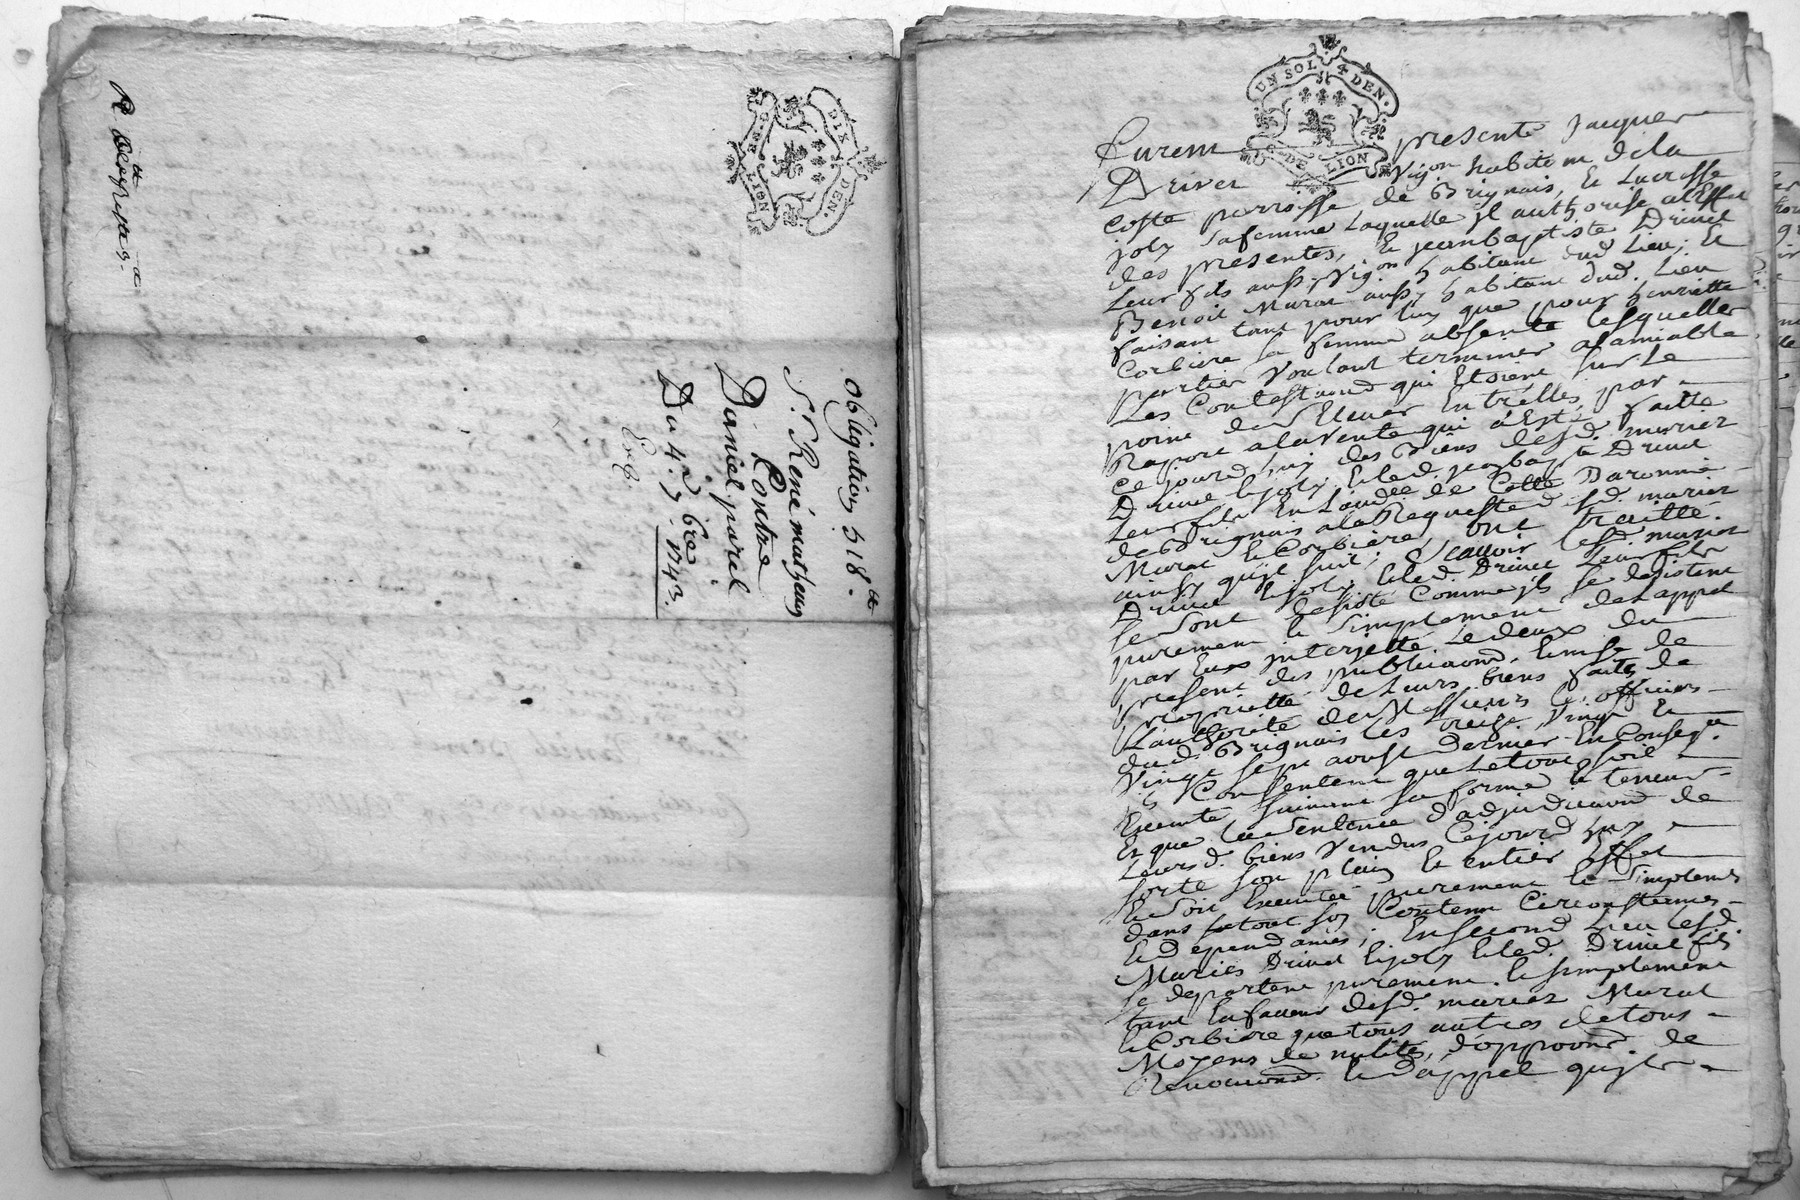 Obligation 318.ᵗᵗ
S.ʳ René matheuy
Contre
Daniel parel
Du 4.ᵉ 9.bre 1743.
Exp.
DIX DEN.
GNR. LION
UN SOL 4 DEN.
G. DE LION
Furent presents Jacques
Drivet Vigon habitant de la
coste parroisse de Brignais, Et Lucresse
joly sa femme Laquelle jl authorise a l'Effet
des presentes, Et jeanbaptiste Drivet
Leur fils aussy Vigon habitant dud. Lieu, Et
Benoit Murat aussy habitant dud. Lieu
faisant tant pour luy que pour henriette
Corbiere sa femme absente lesquelles
parties Voulant terminer a l'amiable
Les Contestaons qui Etoient sur Le
point de s'Elever Entr'elles, par
Raport a la Vente qui a Esté faitte
ce jourd'huy des Biens desd. mariez
Drivet Et joly, Et led. jeanbapte Drivet
Leur fils En l'audce de Cette Baronnie
de Brignais a la Requeste desd. mariez
Murat Et Corbiere, ont traitté
ainsy qu'jl suit; Scavoir lesd. mariez
Drivet Et joly Et led. Drivet Leur fils
se sont desisté Comme jls se desistent
purement Et simplement de l'appel
par Eux jnterjetté Le deux du
present des publicaons, Et mise de
proprietté de Leurs biens faite de
L'authorité de Messieurs les officiers
dud. Brignais les treize Vingt Et
Vingt sept aoust dernier En Conseq.ce
Consentent que Le tout soit
Executé suivant sa forme Et teneur
Et que la Sentence d'adjudicaon de
Leurs d. biens Vendus Cejourd'huy
sorte son plain Et entier Effet
Et soit Executée purement Et simplement
dans tout son Contenu Circonstances
Et dependances; En second Lieu lesd.
Mariés Drivet Et joly Et led. Drivet fils
se departent purement Et simplement
tant En faveur desd. mariez Murat
Et Corbiere que tous autres de tous
Moyens de nulités, d'opposon de
Revocaons Et d'appel qu'jls